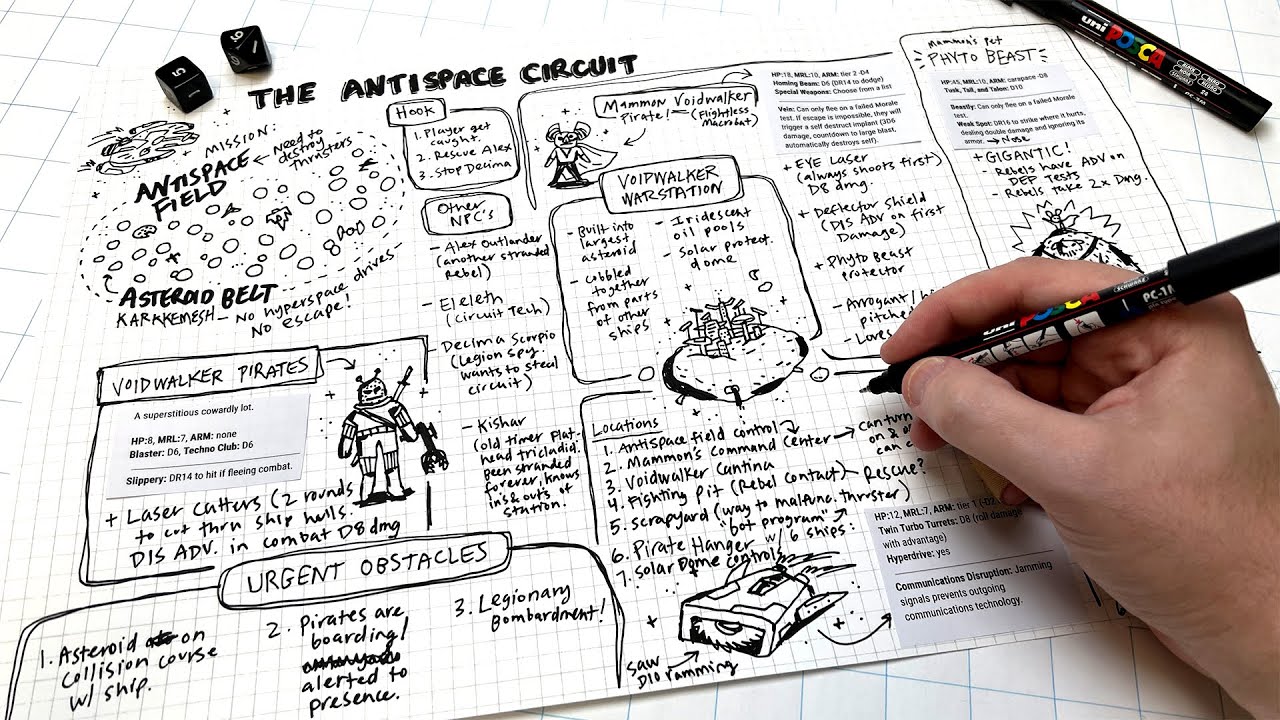 THE ANTISPACE CIRCUIT
MISSION:
Need to
destroy
thrusters
ANTISPACE
FIELD
ASTEROID BELT
KARKKEMESH - No hyperspace drives
No escape!
Hook
1. Player get
caught.
2. Rescue Alex
3. Stop Decima
Other
NPC's
- Alex Outlander
(another stranded
Rebel)
- Eleleth
(Circuit Tech)
- Decima Scorpio
(Legion spy
wants to steal
circuit)
- Kishar
(old timer Flat-
head tricladid.
Been stranded
forever, knows
ins & outs of
station.
Mammon Voidwalker
Pirate! - (Flightless
Macrobat)
HP:18, MRL:10, ARM: tier 2 -D4
Homing Beam: D6 (DR14 to dodge)
Special Weapons: Choose from a list
Vein: Can only flee on a failed Morale
test. If escape is impossible, they will
trigger a self destruct implant (3D6
damage, countdown to large blast,
automatically destroys self).
+ EYE Laser
(always shoots first)
D8 dmg.
+ Deflector Shield
(DIS ADV on first
Damage)
+ Phyto Beast
protector
- Arrogant/
pitche
- Loves
Mammon's Pet
PHYTO BEAST
HP:45, MRL:10, ARM: carapace -D8
Tusk, Tail, and Talon: D10
Beastly: Can only flee on a failed Morale
test.
Weak Spot: DR16 to strike where it hurts,
dealing double damage and ignoring its
armor. → Nose
+ GIGANTIC!
- Rebels have ADV on
DEF TESTS
- Rebels take 2x Dmg.
VOIDWALKER
WARSTATION
- Built into
largest
asteroid
- cobbled
together
from parts
of other
ships
- Iridescent
oil pools
- Solar protect.
dome
VOIDWALKER PIRATES
A superstitious cowardly lot.
HP:8, MRL:7, ARM: none
Blaster: D6, Techno Club: D6
Slippery: DR14 to hit if fleeing combat.
+ Laser Cutters (2 rounds
to cut thru ship hulls.
DIS ADV. in combat D8 dmg
Locations
1. Antispace field control
2. Mammon's Command Center
3. Voidwalker Cantina
4. Fighting Pit (Rebel contact) - Rescue?
5. Scrapyard (way to malfunc. thruster)
"bot program"
6. Pirate Hanger w/ 6 ships:
7. Solar Dome controls
can turn
on &
can
HP:12, MRL:7, ARM: tier 1
Twin Turbo Turrets: D8 (roll damage
with advantage)
Hyperdrive: yes
Communications Disruption: Jamming
signals prevents outgoing
communications technology.
saw
D10 ramming
URGENT OBSTACLES
1. Asteroid on
collision course
w/ ship.
2. Pirates are
boarding!
alerted to
presence.
3. Legionary
Bombardment!
uni POSCA
uni POSCA
PC-1M
SCHWARZ
5